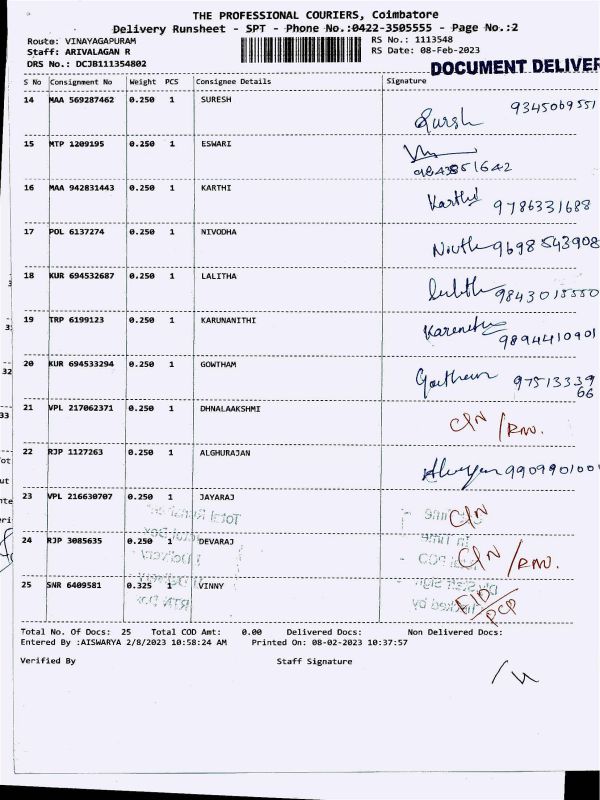 THE PROFESSIONAL COURIERS, Coimbatore
Delivery Runsheet - SPT - Phone No.:0422-3505555 - Page No.:2
Route: VINAYAGAPURAM RS No.: 1113548
Staff: ARIVALAGAN R RS Date: 08-Feb-2023
DRS No.: DCJB111354802
DOCUMENT DELIVER
S No Consignment No Weight PCS Consignee Details Signature
14 MAA 569287462 0.250 1 SURESH Sursh 9345069551
15 MTP 1209195 0.250 1 ESWARI
16 MAA 942831443 0.250 1 KARTHI Karthi 9786331688
17 POL 6137274 0.250 1 NIVODHA 9698543908
18 KUR 694532687 0.250 1 LALITHA 9843015550
19 TRP 6199123 0.250 1 KARUNANITHI 9894410901
20 KUR 694533294 0.250 1 GOWTHAM 9751333966
21 VPL 217062371 0.250 1 DHNALAAKSHMI
22 RJP 1127263 0.250 1 ALGHURAJAN 9909901001
23 VPL 216630707 0.250 1 JAYARAJ
24 RJP 3085635 0.250 1 DEVARAJ
25 SNR 6409581 0.325 1 VINNY
Total No. Of Docs: 25 Total COD Amt: 0.00 Delivered Docs: Non Delivered Docs:
Entered By :AISWARYA 2/8/2023 10:58:24 AM Printed On: 08-02-2023 10:37:57
Verified By Staff Signature